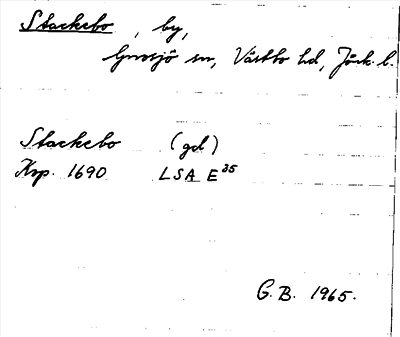 Stackebo, by,
Gnosjö sn, Västbo hd, Jönk. l.
Stackebo (gd)
Krp. 1690 LSA E35
G. B. 1965.